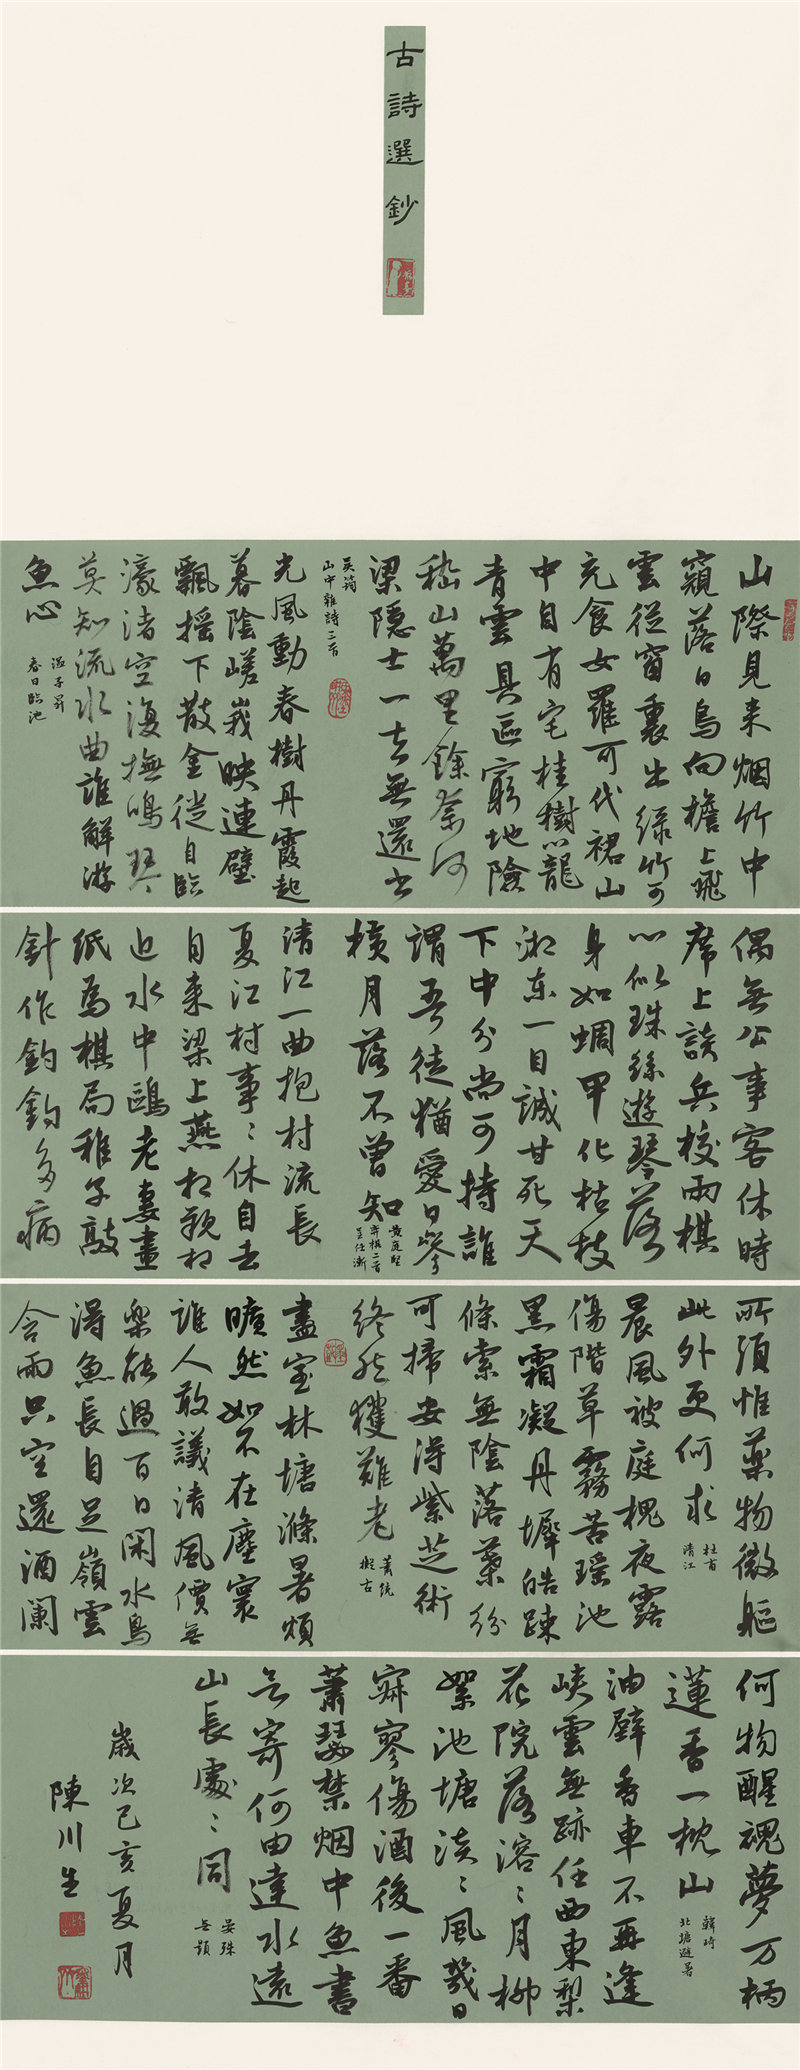 古詩選鈔
山際見来烟竹中
窺落日鳥向檐上飛
雲從窗裏出綠竹可
充食女羅可代裙山
中自有宅桂樹心龍
青雲具區窮地險
嵇山萬里餘奈何
梁隱士一去無還書
吴筠
山中雜詩三首
光風動春樹丹霞起
暮陰嵯峩映連璧
飄揺下散金徙自臨
濠渚空復撫鳴琴
莫知流水曲誰解游
魚心
温子昇
春日臨池
偶無公事客休時
席上談兵校兩棋
心似珠絲遊碧落
身如蜩甲化枯枝
湘東一目誠甘死天
下中分尚可持誰
謂吾徒猶愛日参
横月落不曾知
黄庭堅
弈棋二首
呈任漸
清江一曲抱村流長
夏江村事〻休自去
自来梁上燕相親相
近水中鷗老妻畫
紙為棋局稚子敲
針作釣鈎多病
所須惟藥物微軀
此外更何求
杜甫
清江
晨風被庭槐夜露
傷階草霧苦瑶池
黑霜凝丹墀皓疎
條索無陰落葉紛
可掃安得紫芝術
終然獲難老
蕭統
擬古
盡室林塘滌暑煩
曠然如不在塵寰
誰人敢議清風價無
樂能過百日閑水鳥
得魚長自足嶺雲
含雨只空還酒闌
何物醒魂夢万柄
蓮香一枕山
韓琦
北塘避暑
油壁香車不再逢
峽雲無跡任西東梨
花院落溶〻月柳
絮池塘淡〻風幾日
寂寥傷酒後一番
蕭瑟禁烟中魚書
欲寄何由達水遠
山長處〻同
晏殊
無題
歲次己亥夏月
陳川生